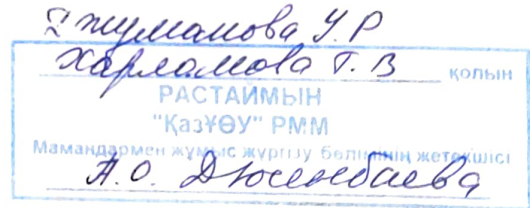 Джуманова У.Р
Харламова Т.В қолын
РАСТАЙМЫН
"ҚазҰӨУ" РММ
Мамандармен жұмыс жүргізу бөлімінің жетекшісі
А.О. Дюсенбаева